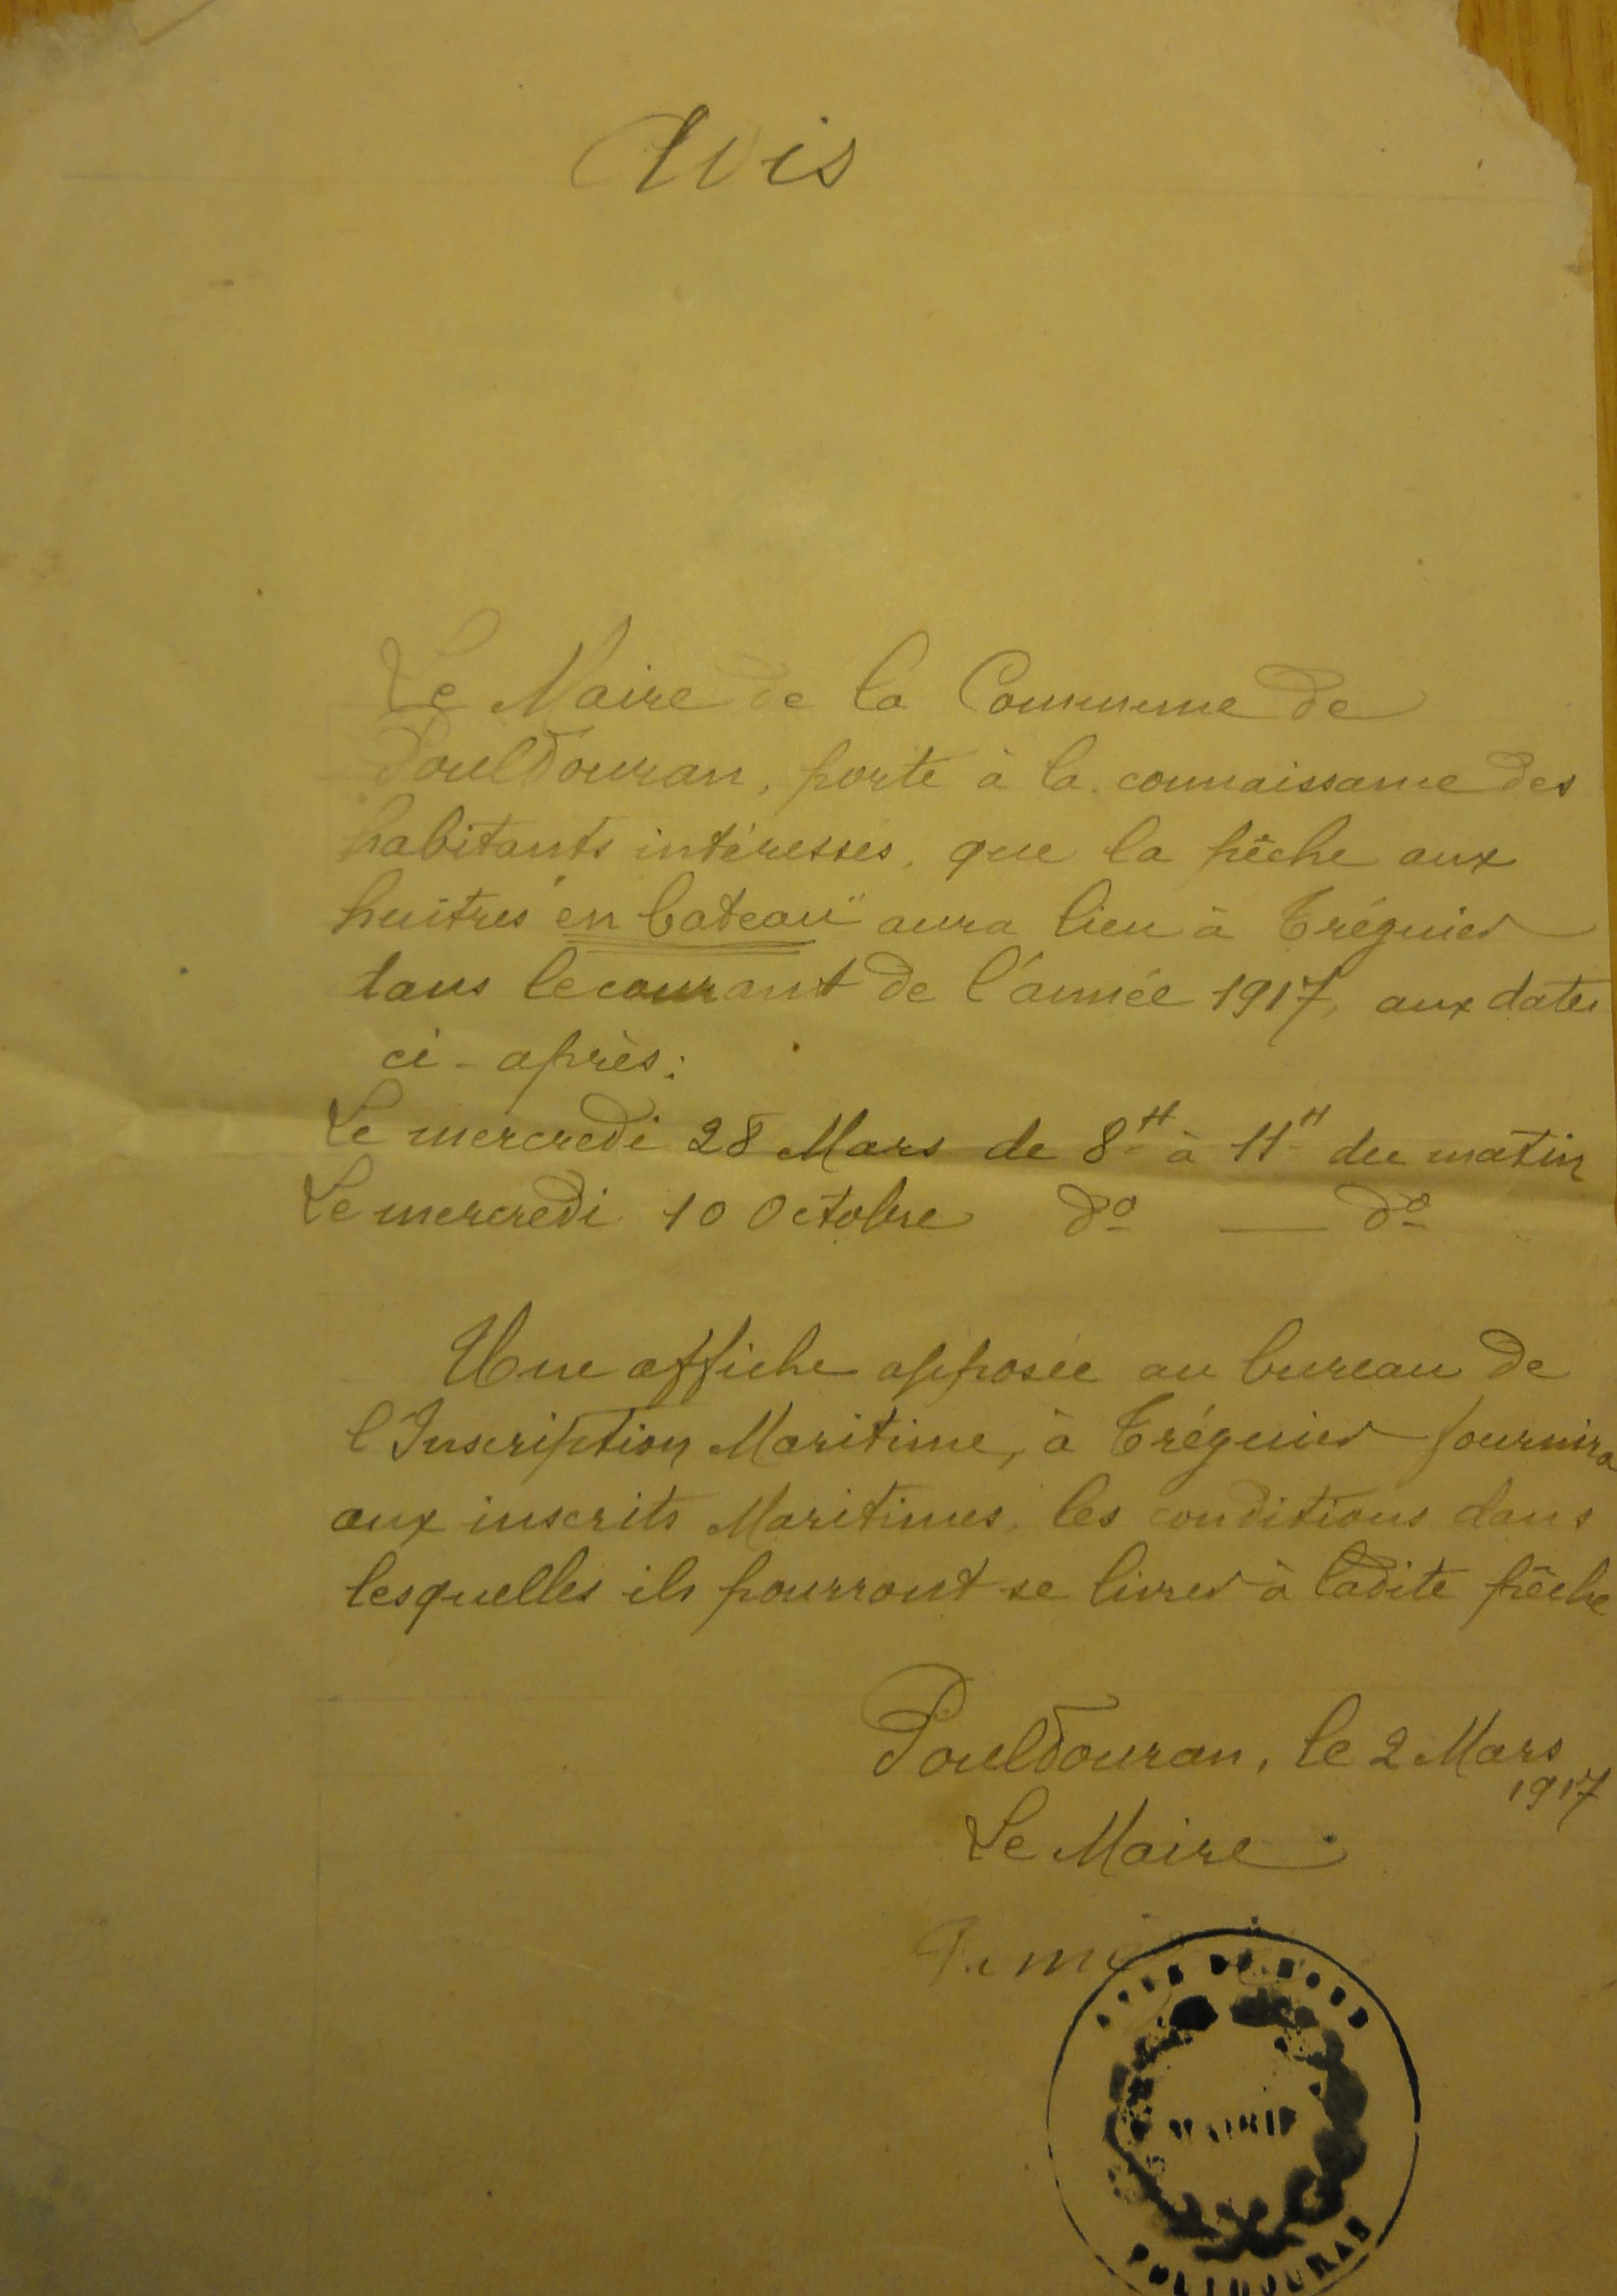 Avis
Le Maire de la Commune de
Pouldouran, porte à la connaissance des
habitants intéressés, que la pêche aux
huitres "en bateau" aura lieu à Tréguier
dans le courant de l'année 1917, aux dates
ci-après:
Le mercredi 28 Mars de 8H à 11H du matin
Le mercredi 10 Octobre do — do
Une affiche apposée au bureau de
l'Inscription Maritime, à Tréguier fournira
aux inscrits Maritimes, les conditions dans
lesquelles ils pourront se livrer à ladite pêche
Pouldouran, le 2 Mars
1917
Le Maire
MAIRIE
POULDOURAN